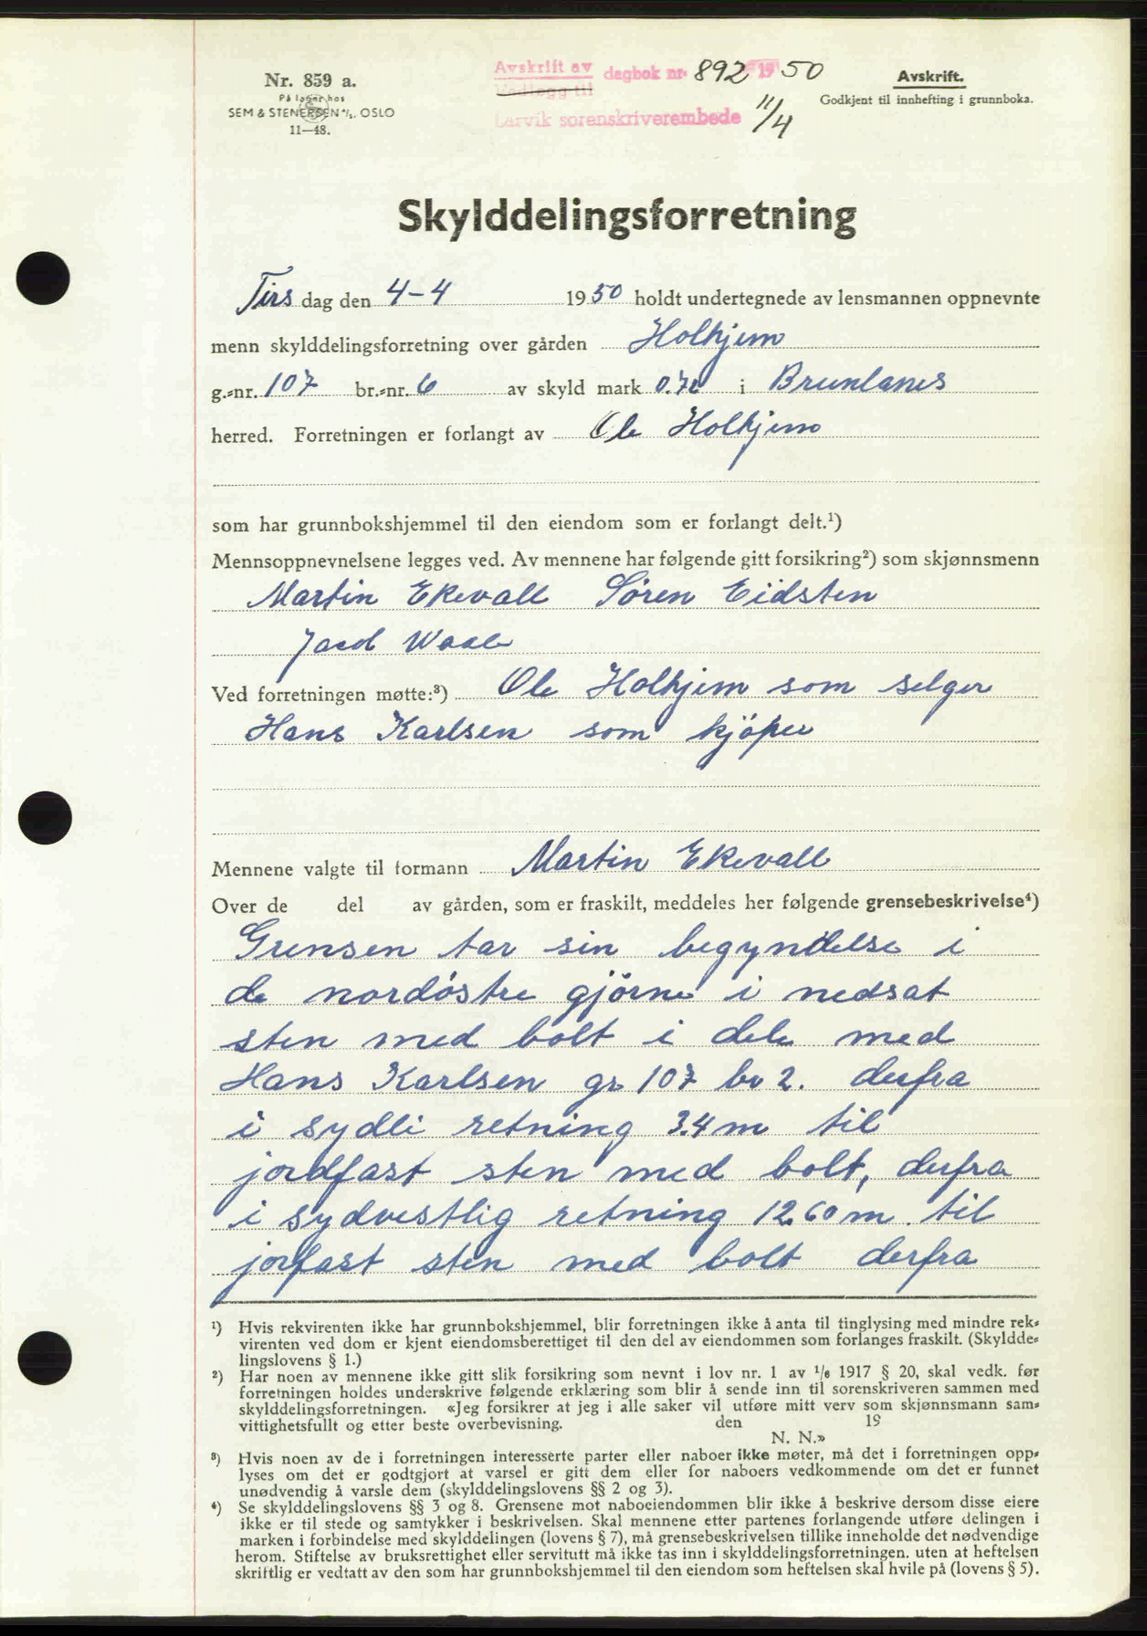 Nr. 859 a.
På lager hos
SEM & STENERSEN A/S. OSLO
11—48.
Avskrift av dagbok nr. 892 1950
Vedlegg til
Larvik sorenskriverembede 11/4
Avskrift.
Godkjent til innhefting i grunnboka.
Skylddelingsforretning
Tirsdag den 4-4 1950 holdt undertegnede av lensmannen oppnevnte
menn skylddelingsforretning over gården Holhjem
g.-nr. 107 br.-nr. 6 av skyld mark 0.72 i Brunlanes
herred. Forretningen er forlangt av Ole Holhjem
som har grunnbokshjemmel til den eiendom som er forlangt delt.¹)
Mennsoppnevnelsene legges ved. Av mennene har følgende gitt forsikring²) som skjønnsmenn
Martin Ekevall Søren Eidsten
Jacob Waale
Ved forretningen møtte:³) Ole Holhjem som selger
Hans Karlsen som kjöper
Mennene valgte til formann Martin Ekevall
Over de del av gården, som er fraskilt, meddeles her følgende grensebeskrivelse⁴)
Grensen tar sin begyndelse i
de nordöstre gjörne i nedsat
sten med bolt i dele med
Hans Karlsen gr 107 bv 2. derfra
i sydli retning 3.4 m til
jordfast sten med bolt, derfra
i sydvestlig retning 12.60 m. til
jorfast sten med bolt derfra
¹) Hvis rekvirenten ikke har grunnbokshjemmel, blir forretningen ikke å anta til tinglysing med mindre rek-
virenten ved dom er kjent eiendomsberettiget til den del av eiendommen som forlanges fraskilt. (Skyldde-
lingslovens § 1.)
²) Har noen av mennene ikke gitt slik forsikring som nevnt i lov nr. 1 av 1/6 1917 § 20, skal vedk. før
forretningen holdes underskrive følgende erklæring som blir å sende inn til sorenskriveren sammen med
skylddelingsforretningen. «Jeg forsikrer at jeg i alle saker vil utføre mitt verv som skjønnsmann sam-
vittighetsfullt og etter beste overbevisning. den 19
N. N.»
³) Hvis noen av de i forretningen interesserte parter eller naboer ikke møter, må det i forretningen opp-
lyses om det er godtgjort at varsel er gitt dem eller for naboers vedkommende om det er funnet
unødvendig å varsle dem (skylddelingslovens §§ 2 og 3).
⁴) Se skylddelingslovens §§ 3 og 8. Grensene mot naboeiendommen blir ikke å beskrive dersom disse eiere
ikke er til stede og samtykker i beskrivelsen. Skal mennene etter partenes forlangende utføre delingen i
marken i forbindelse med skylddelingen (lovens § 7), må grensebeskrivelsen tillike inneholde det nødvendige
herom. Stiftelse av bruksrettighet eller servitutt må ikke tas inn i skylddelingsforretningen. uten at heftelsen
skriftlig er vedtatt av den som har grunnbokshjemmel til den eiendom som heftelsen skal hvile på (lovens § 5).